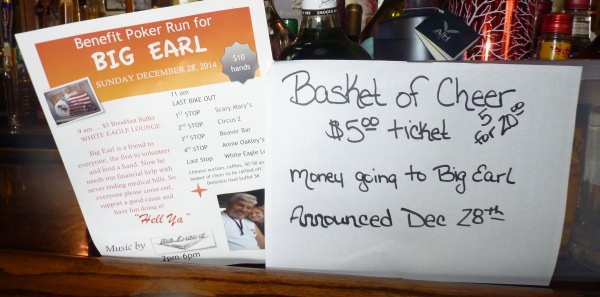 Benefit Poker Run for
BIG EARL
SUNDAY DECEMBER 28, 2014
$10
hands
9 am ... $5 Breakfast Buffet
WHITE EAGLE LOUNGE
Big Earl is a friend to
everyone, the first to volunteer
and lend a hand. Now he
needs our financial help with
never ending medical bills. So
everyone please come out,
support a good cause and
have fun doing it!
"Hell Ya"
Music by
2pm-6pm
11 am
LAST BIKE OUT
1ST STOP Scary Mary's
2ND STOP Circus 2
3RD STOP Beaver Bar
4th STOP Annie Oakley's
Last Stop White Eagle Lo
Chinese auction, raffles, 50/50 an
basket of cheer to be raffled off.
Delicious food buffet $6
Basket of Cheer
$5.00 ticket 5 for 20.00
Money going to Big Earl
Announced Dec 28th